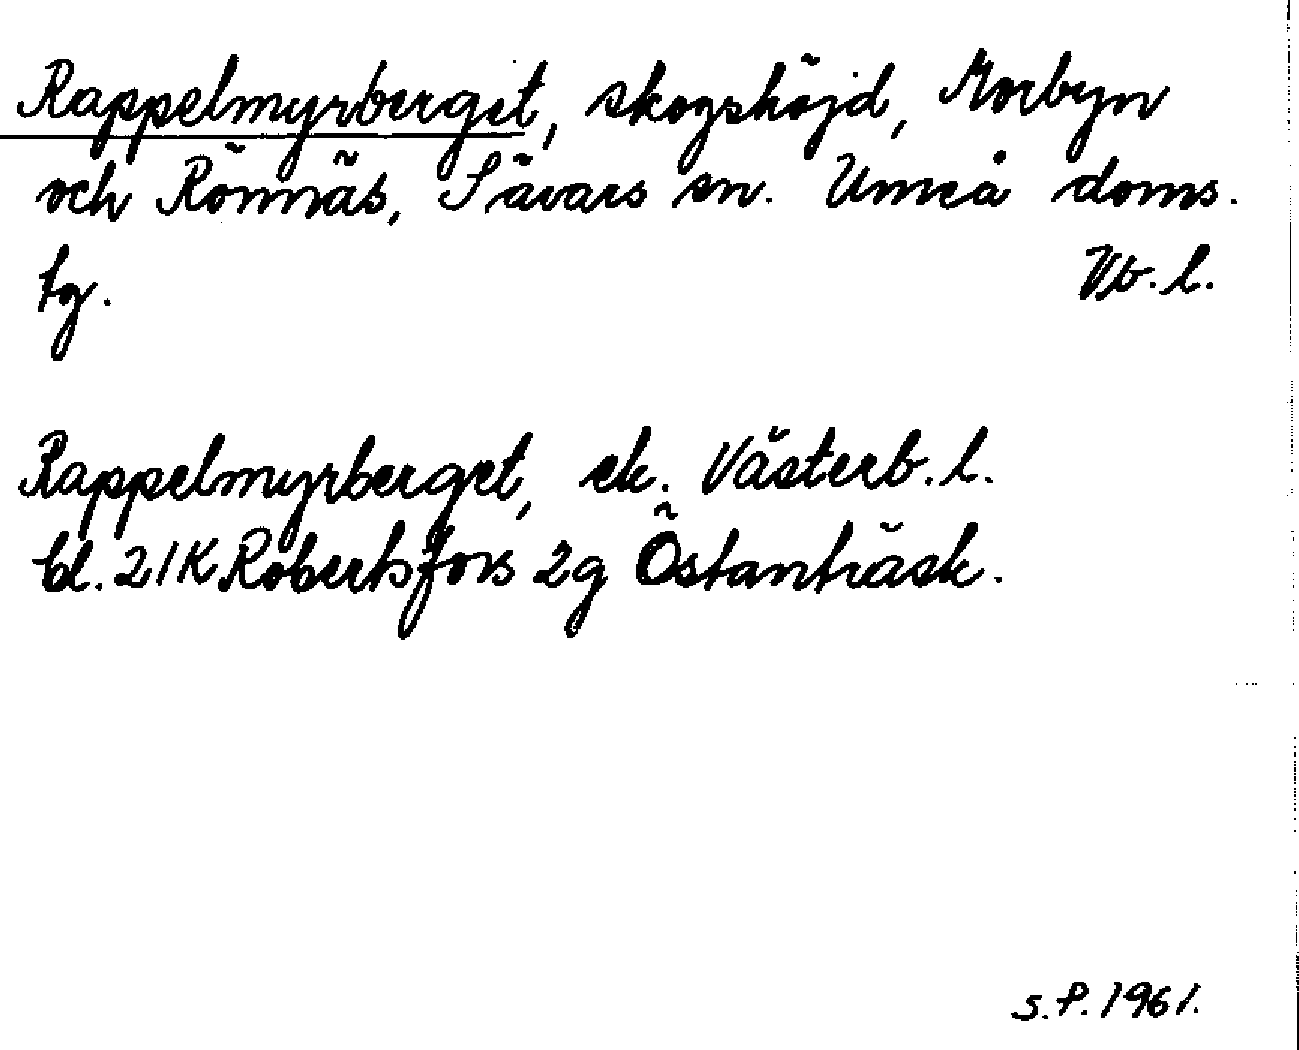 Rappelmyrberget, skogshöjd, Morbyn
och Rönnäs, Sävars sn. Umeå doms.
tg. Vb. l.
Rappelmyrberget, ek. Västerb. l.
bl. 21K Robertsfors 2g Östanträsk.
S.P. 1961.